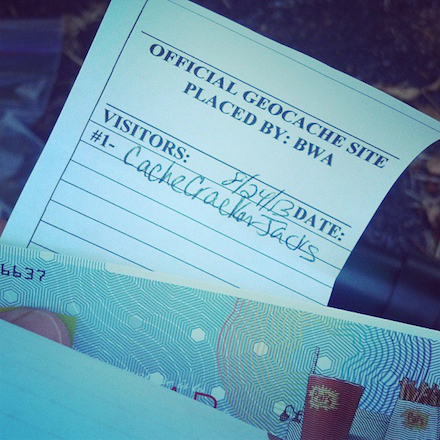 OFFICIAL GEOCACHE SITE
PLACED BY: BWA
VISITORS: 8/24/13 DATE:
#1- CacheCrackerJacks
6637